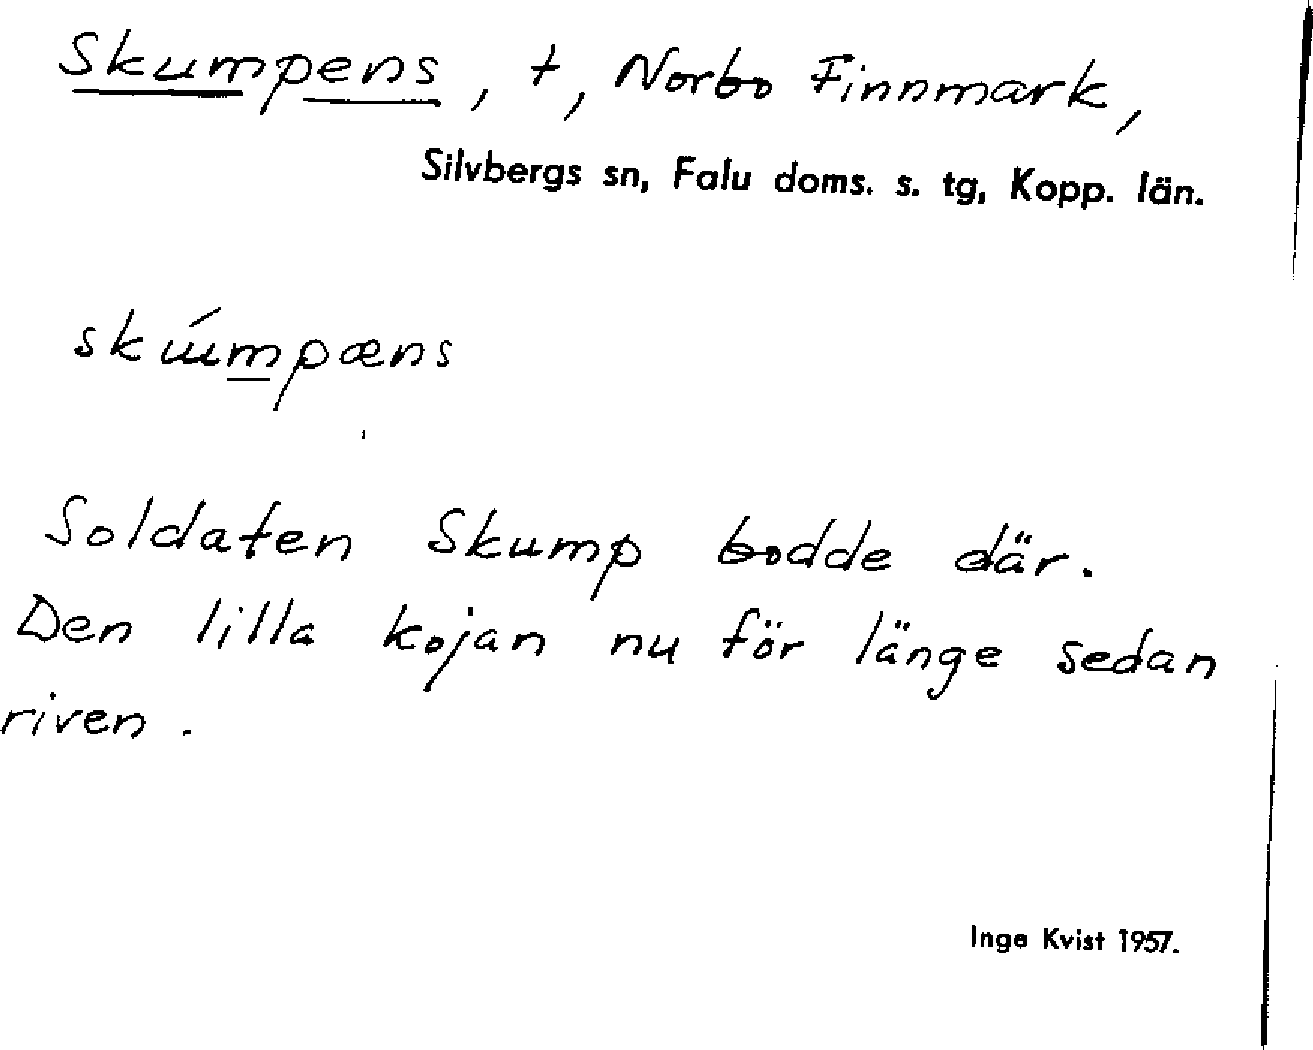 Skumpens, +, Norbo Finnmark,
Silvbergs sn, Falu doms. s. tg, Kopp. län.
skúmpæns
Soldaten Skump bodde där.
Den lilla kojan nu för länge sedan
riven.
Inga Kvist 1957.